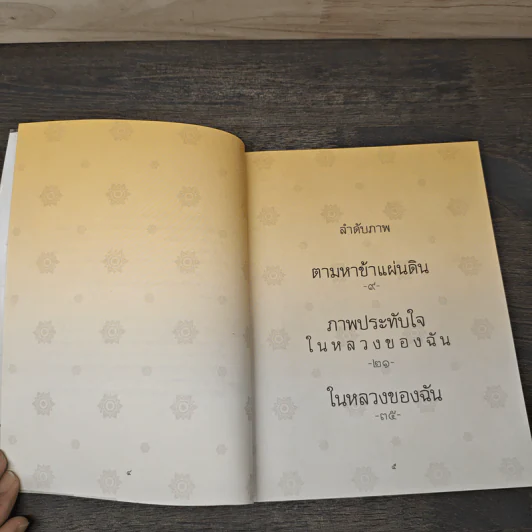 ๔
ลำดับภาพ
ตามหาข้าแผ่นดิน
-๙-
ภาพประทับใจ
ในหลวงของฉัน
-๒๑-
ในหลวงของฉัน
-๓๕-
๕